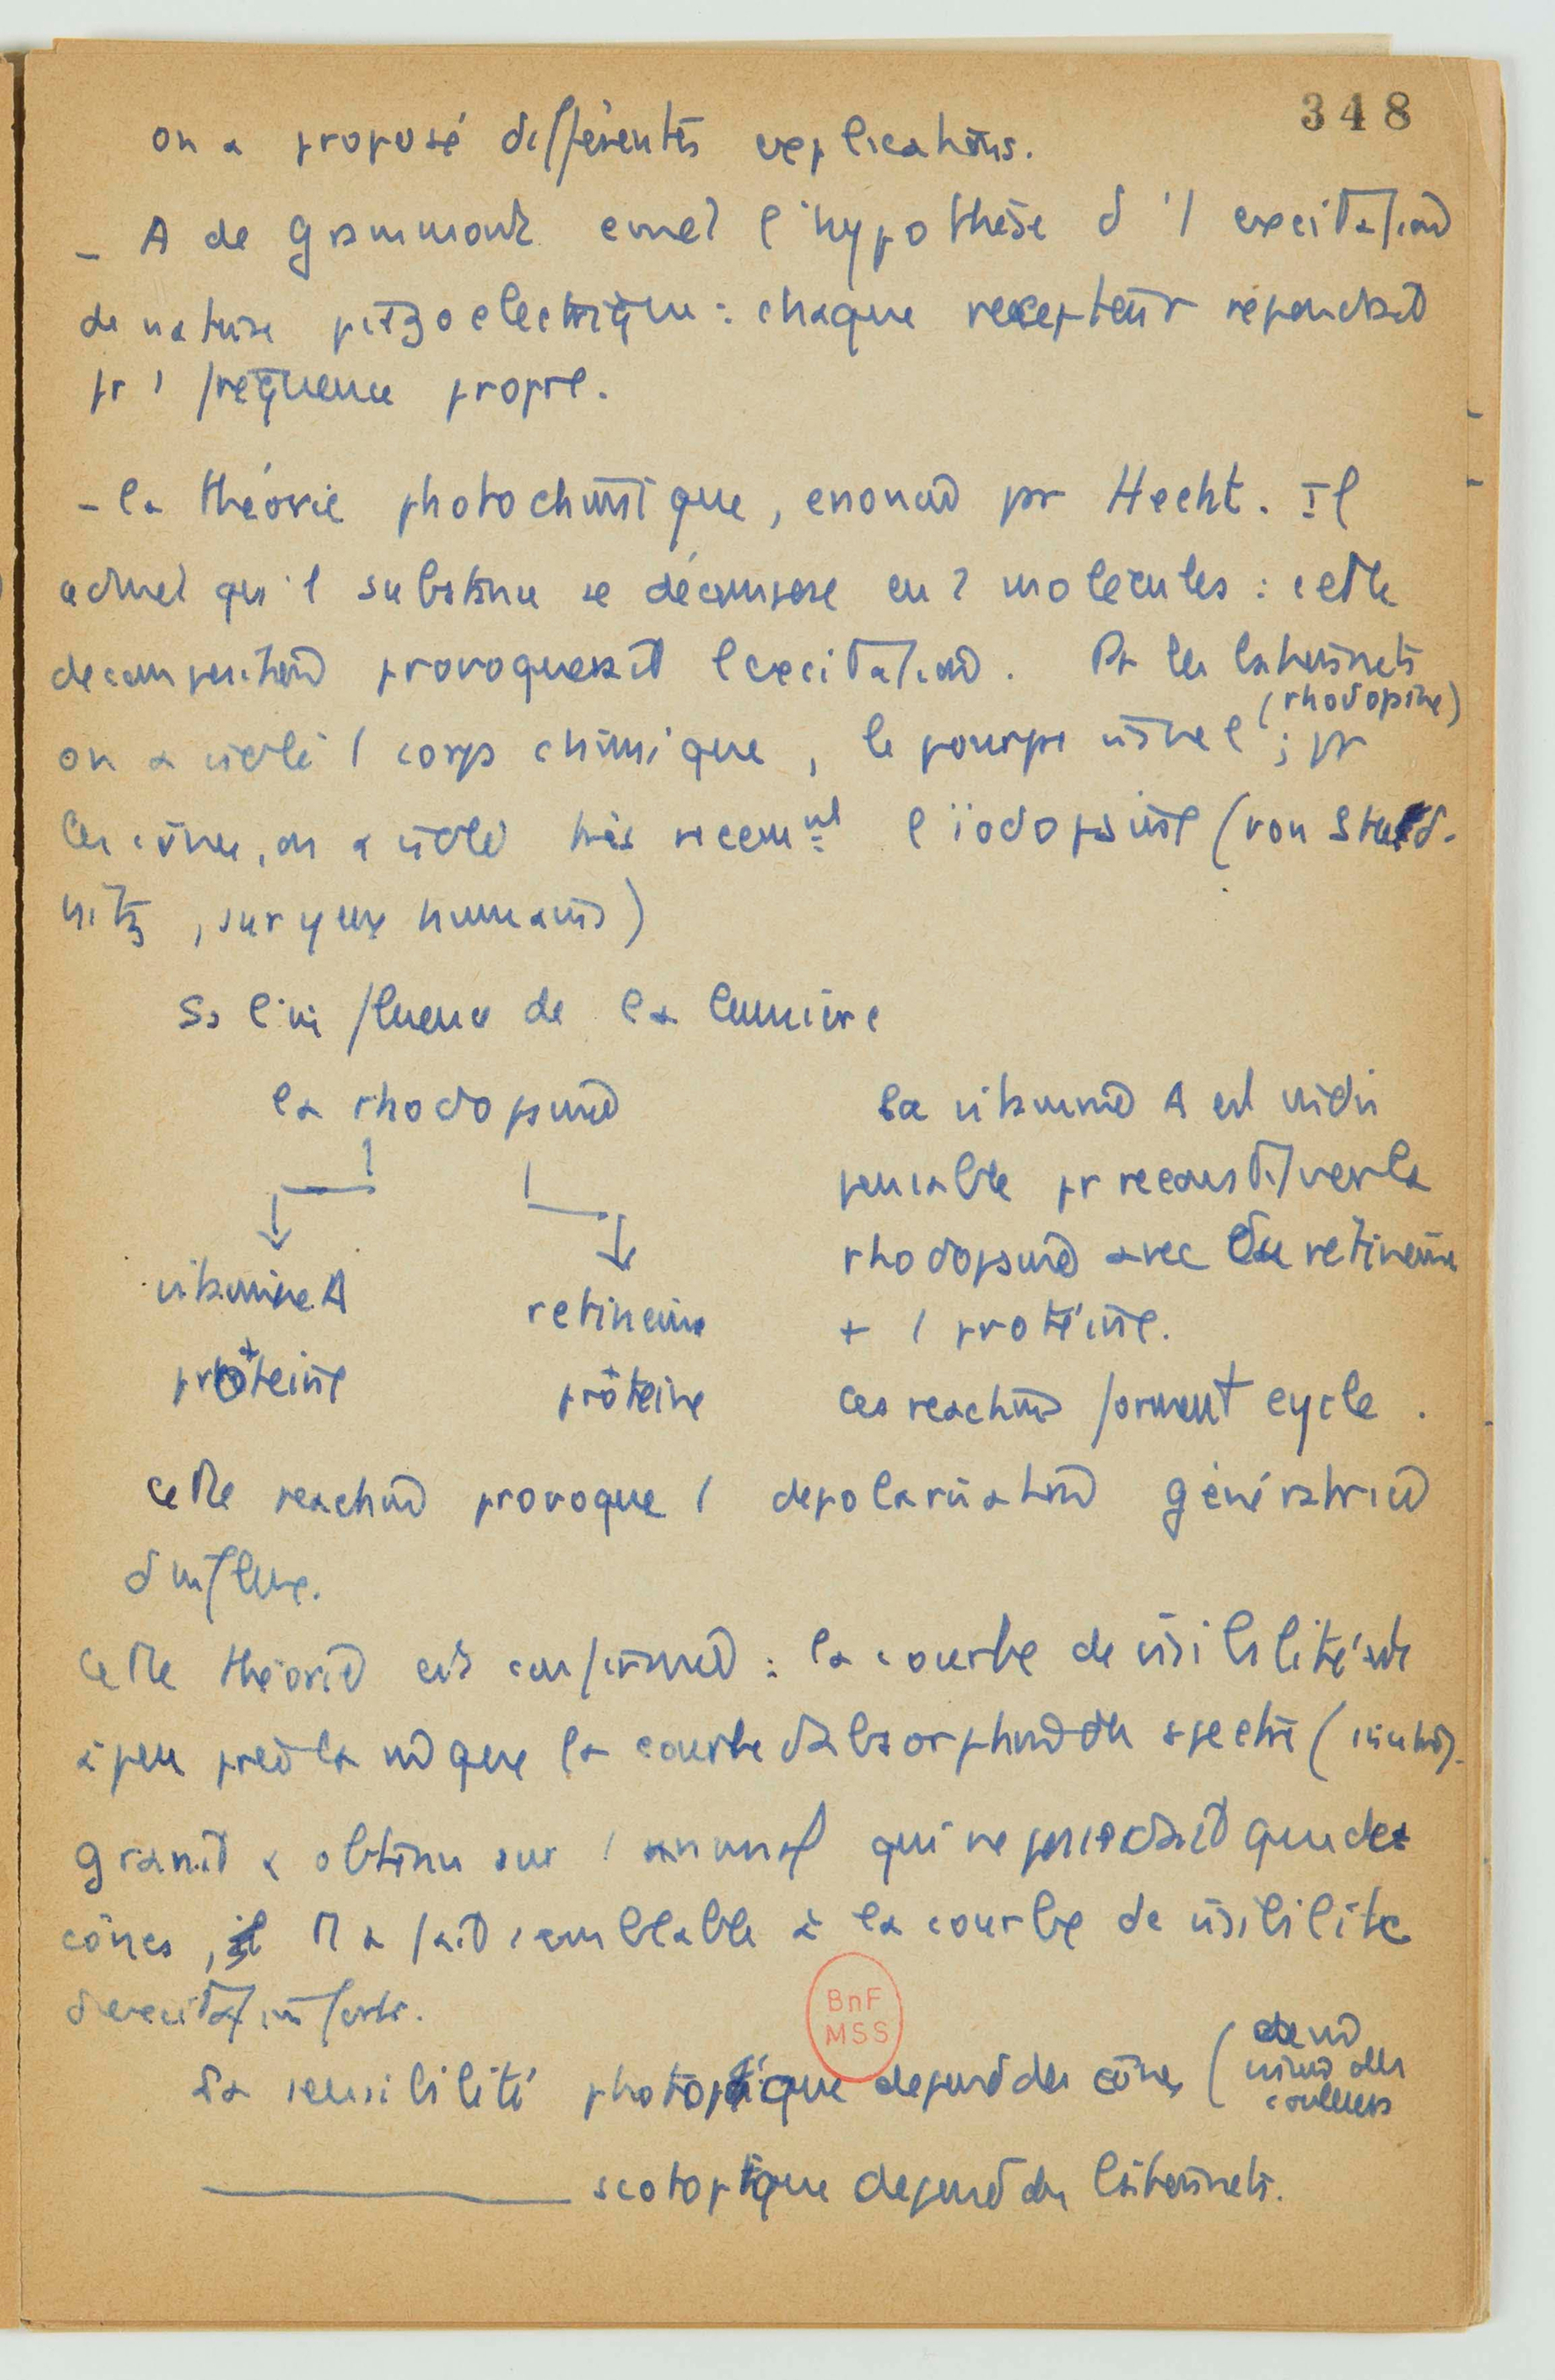 348
on a proposé différentes explications.
- A de Grammont emet l'hypothèse d'1 excitation
de nature piézoelectrique : chaque recepteur répondrait
pr 1 fréquence propre.
- la théorie photochimique, enoncée par Hecht. Il
admet qu'1 substance se décompose en 2 molécules : cette
decomposition provoquerait l'excitation. Pr les batonnets
(rhodopsine)
on a isolé 1 corps chimique, le pourpre visuel ; pr
les cônes, on a isolé très recemnt l'iodopsine (von Stud-
nitz, sur yeux humains)
Ss l'influence de la lumière
la rhodopsine
vitamine A
+
proteine
retinene
+
protéine
La vitamine A est indis
pensable pr reconstituer la
rhodopsine avec du retinene
+ 1 protéine.
Ces reactions forment cycle.
Cette reaction provoque 1 depolarisation génératrice
d'influx.
Cette théorie est confirmée : la courbe de visibilité est
à peu près la m̂ que la courbe d'absorption du spectre (
Granit a obtenu sur 1 animal qui ne possédait que des
cônes, il a fait semblable à la courbe de visibilité
d'excitation forte.
La sensibilité photopique depend des cônes (
vision des
couleurs
scotopique depend des batonnets.
BnF
MSS